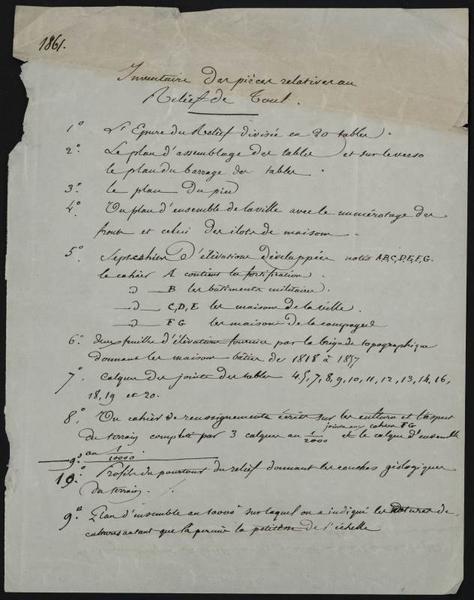 1861.
Inventaire des pièces relatives au
Relief de Toul.
1° L'Epure du Relief divisée en 20 tables.
2° Le plan d'assemblage des tables et sur le verso
le plan du barrage des tables
3° le plan du pied
4° Un plan d'ensemble de la ville avec le numérotage des
fronts et celui des ilots de maisons.
5° Sept cahiers d'élévations développées notés A,B,C,D,E,F,G.
le cahier A contient la fortification.
d° B les bâtiments militaires.
d° C, D, E les maisons de la ville.
d° F G les maisons de la campagne
6° deux feuilles d'élévations fournies par la brigade topographique
donnant les maisons bâties de 1818 à 1857
7° calque des joints des tables 4,5,7,8,9,10,11,12,13,14,16,
18, 19 et 20.
8° Un cahier de renseignements écrits sur les cultures et l'aspect
du terrain complété par 3 calques au 1/2000 joints au cahier FG et le calque d'ensemble
au 1/10000
9°
10° Profils du pourtour du relief donnant les couches géologiques
du terrain.
9° Plan d'ensemble au 10000° sur lequel on a indiqué les natures de
cultures autant que l'a permis la petitesse de l'échelle